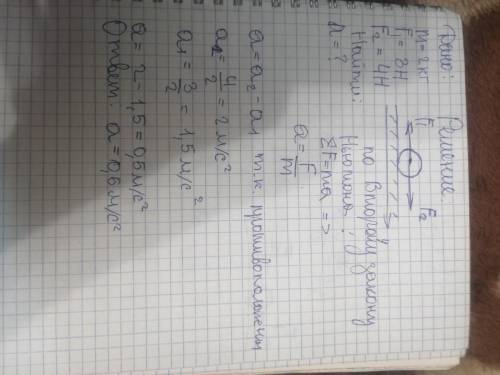 Дано:
m=2кг
F₁=3Н
F₂=4Н
Найти:
a=?
Решение
F₁
F₂
по Второму закону
Ньютона:
ΣF=ma =>
a=F/m
a=a₂-a₁ т.к. противоположены
a₂=4/2=2м/с²
a₁=3/2=1,5м/с²
a=2-1,5=0,5м/с²
Ответ: a=0,5м/с²